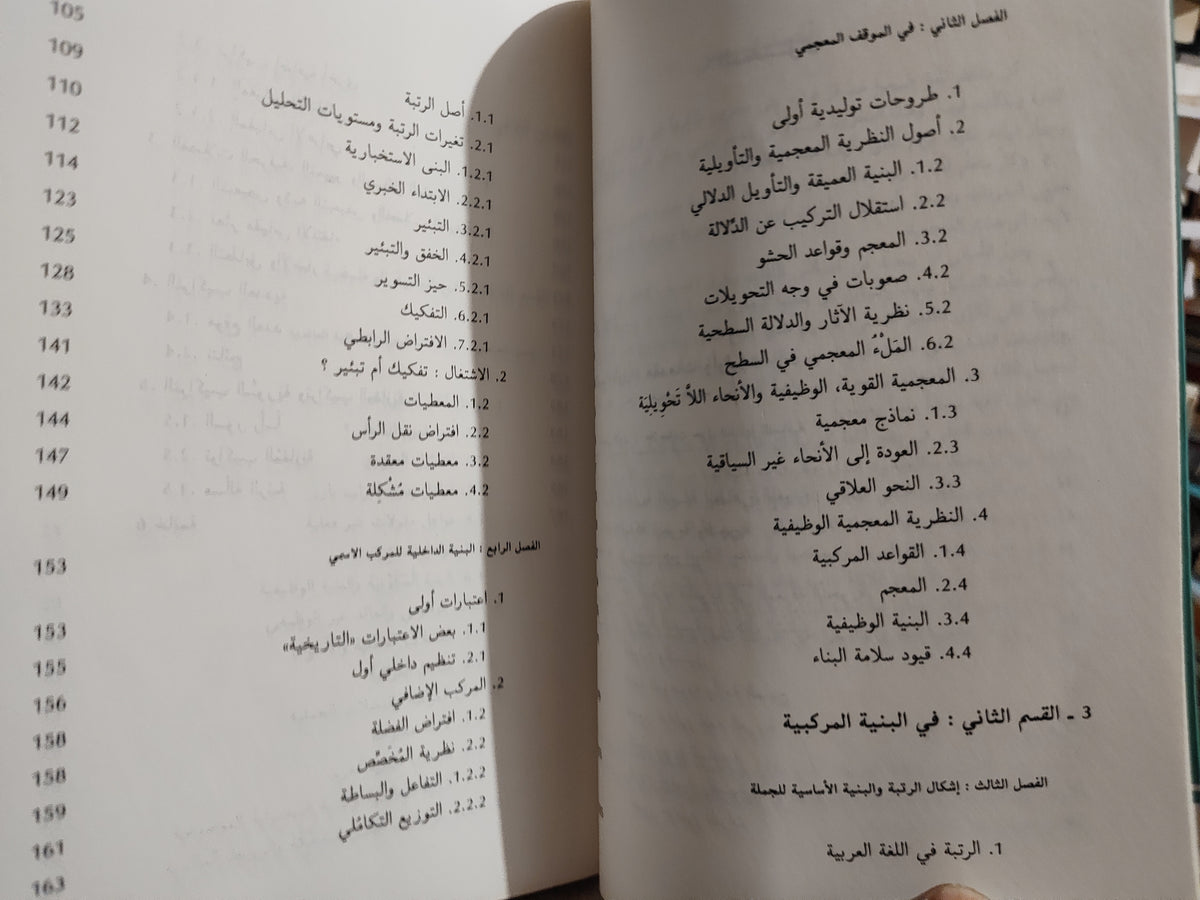 الفصل الثاني : في الموقف المعجمي
1. طروحات توليدية أولى
2. أصول النظرية المعجمية والتأويلية
1.2. البنية العميقة والتأويل الدلالي
2.2. استقلال التركيب عن الدّلالة
3.2. المعجم وقواعد الحشو
4.2. صعوبات في وجه التحويلات
5.2. نظرية الآثار والدلالة السطحية
6.2. المَلْءُ المعجمي في السطح
3. المعجمية القوية، الوظيفية والأنحاء اللاَّ تَحْوِيلِيَة
1.3. نماذج معجمية
2.3. العودة إلى الأنحاء غير السياقية
3.3. النحو العلاقي
4. النظرية المعجمية الوظيفية
1.4. القواعد المركبية
2.4. المعجم
3.4. البنية الوظيفية
4.4. قيود سلامة البناء
3 ـ القسم الثاني : في البنية المركبية
الفصل الثالث : إشكال الرتبة والبنية الأساسية للجملة
1. الرتبة في اللغة العربية
1.1. أصل الرتبة 105
2.1. تغيرات الرتبة ومستويات التحليل 109
1.2.1. البنى الاستخبارية 110
2.2.1. الابتداء الخبري 112
3.2.1. التبئير 114
4.2.1. الخفق والتبئير 123
5.2.1. حيز التسوير 125
6.2.1. التفكيك 128
7.2.1. الافتراض الرابطي 133
2. الاشتغال : تفكيك أم تبئير ؟ 141
1.2. المعطيات 142
2.2. افتراض نقل الرأس 144
3.2. معطيات معقدة 147
4.2. معطيات مُشْكِلة 149
الفصل الرابع : البنية الداخلية للمركب الاسمي 153
1. اعتبارات أولى 153
1.1. بعض الاعتبارات «التاريخية» 155
2.1. تنظيم داخلي أول 156
2. المركب الإضافي 158
1.2. افتراض الفضلة 158
2.2. نظرية المُخَصِّص 159
1.2.2. التفاعل والبساطة 161
2.2.2. التوزيع التكامُلي 163